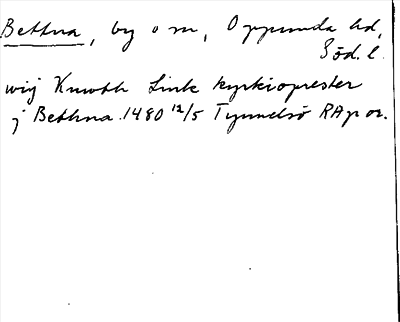 Bettna, by o sn, Oppunda hd,
Söd. l.
wij Knwth Link kyrkioprester
j Bethna 1480 12/5 Tynnelsö RAp or.